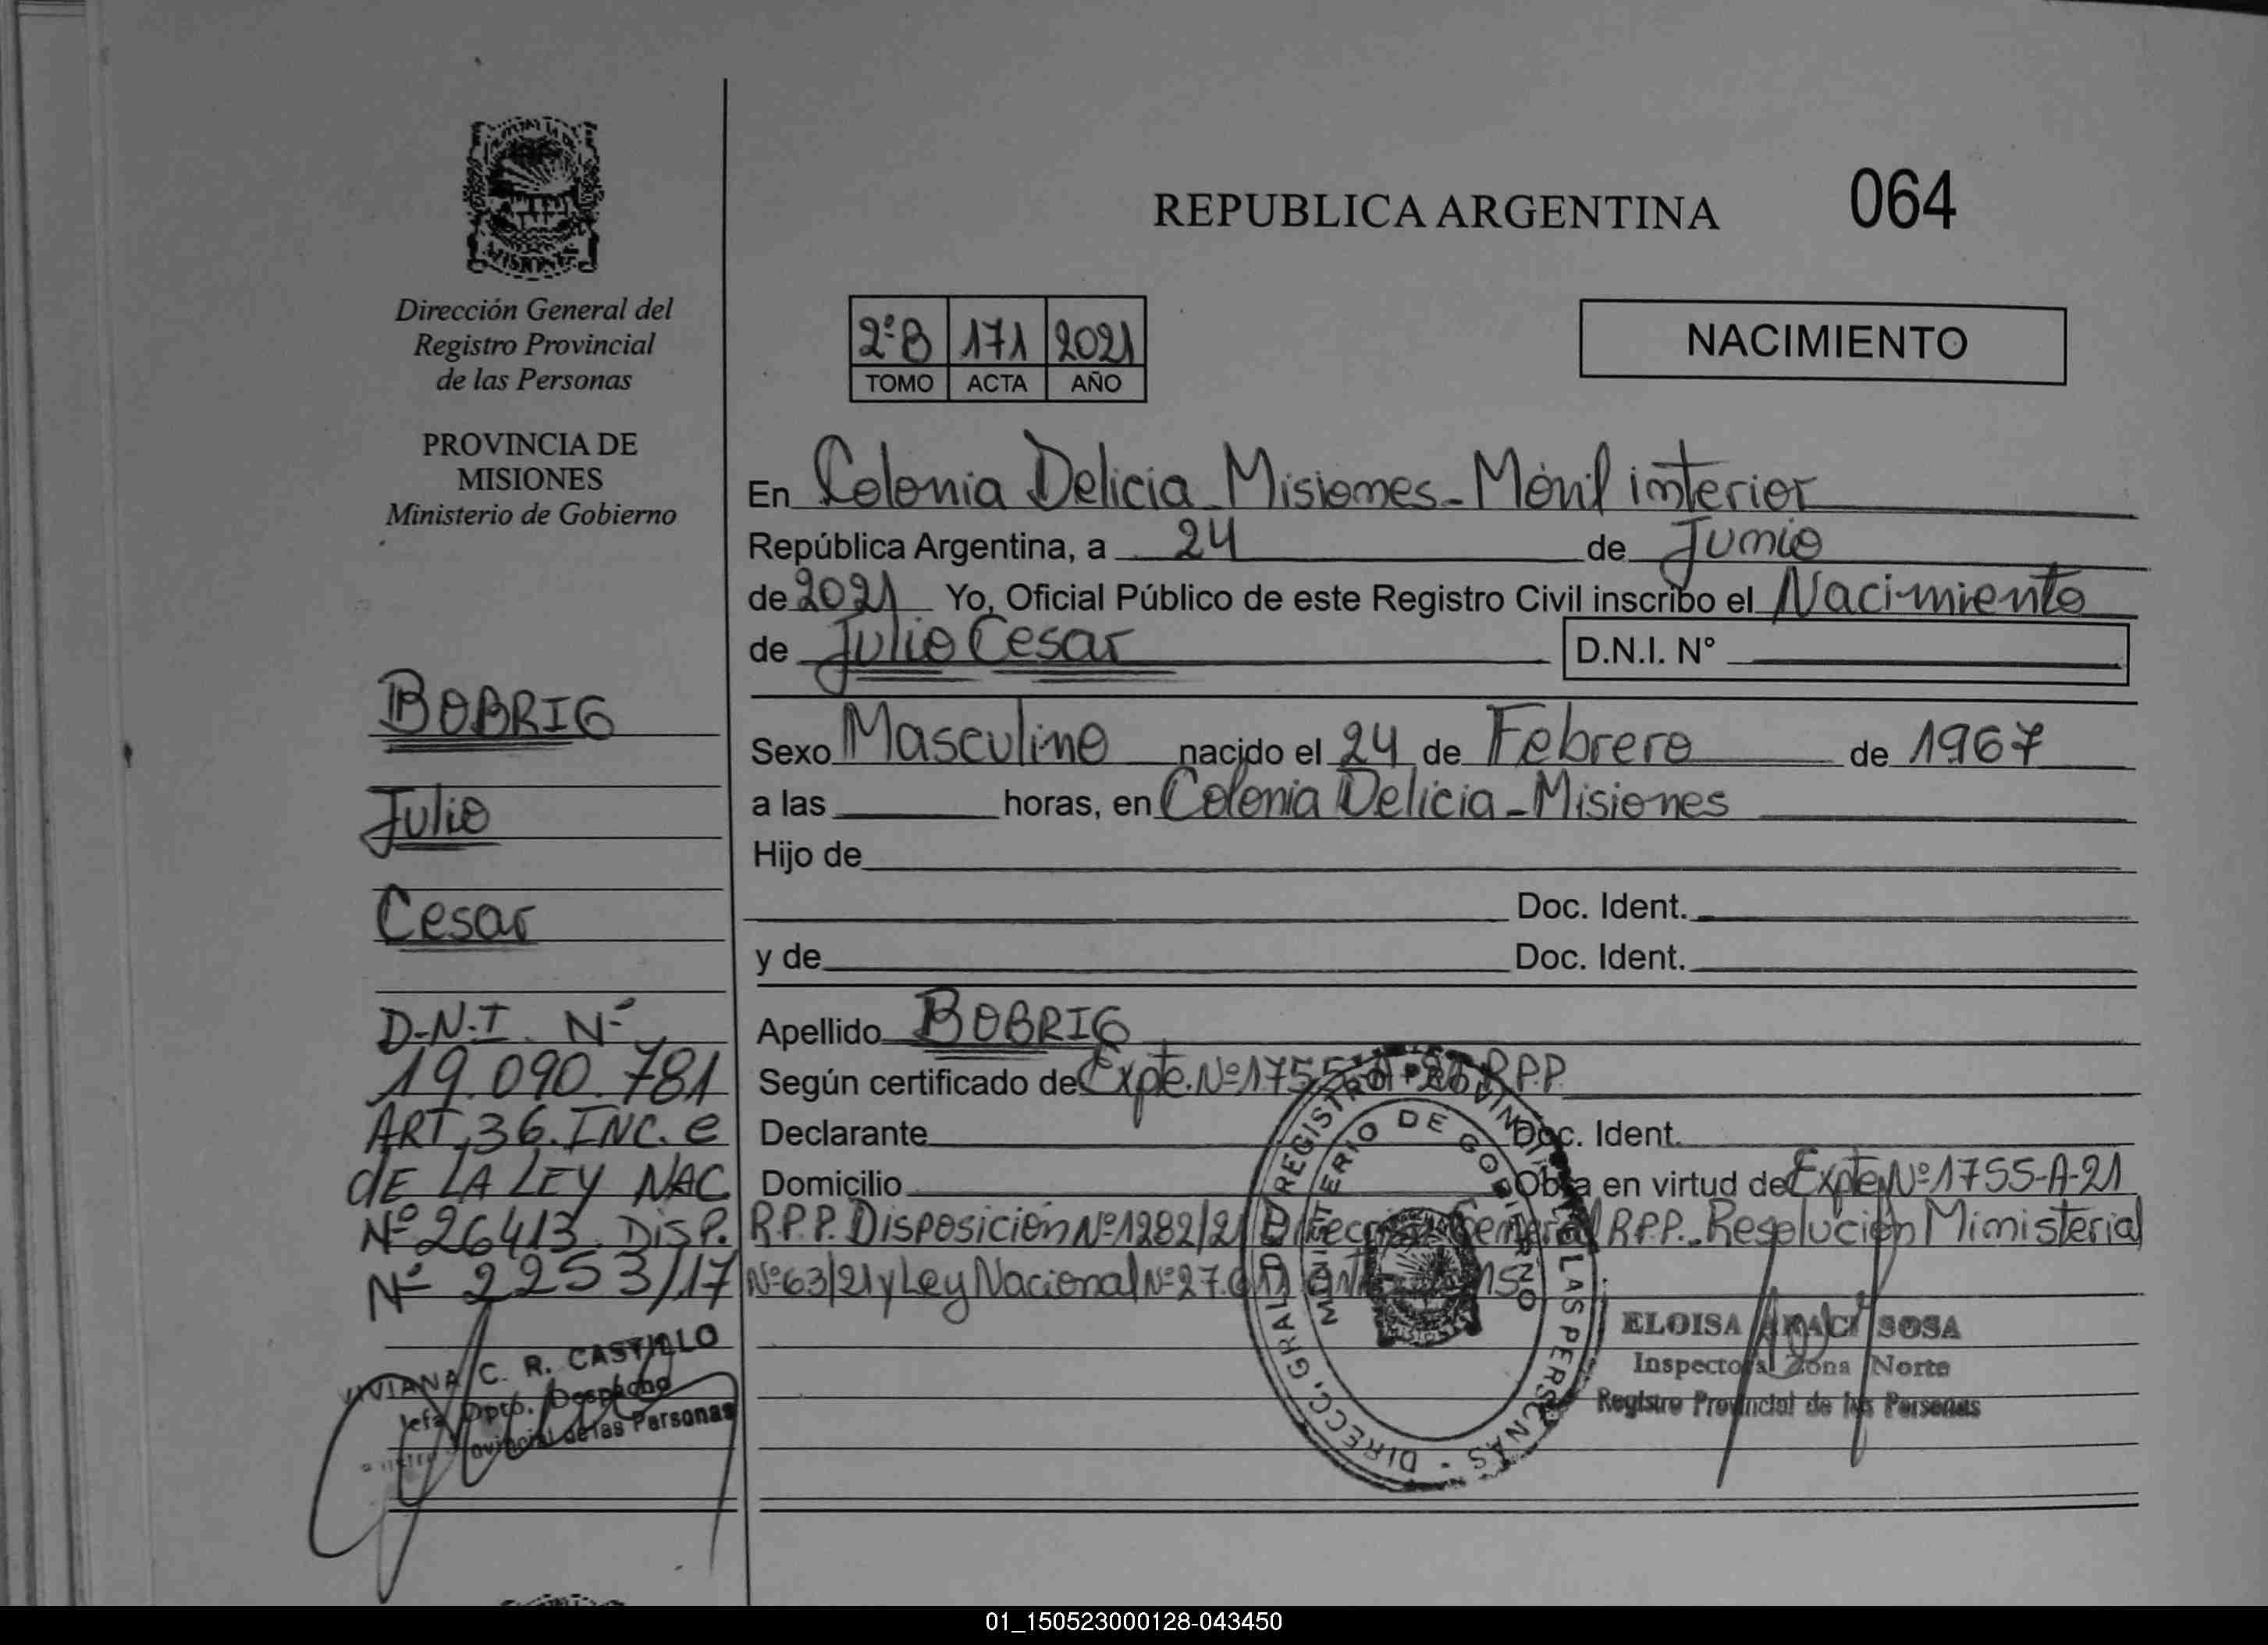 REPUBLICA ARGENTINA 064
MISIONES
Dirección General del
Registro Provincial
de las Personas
PROVINCIA DE
MISIONES
Ministerio de Gobierno
BOBRIG
Julio
Cesar
D.N.I. Nº
19.090.781
ART. 36. INC. e
dE LA LEY NAC.
Nº 26413. DISP.
Nº 2253/17
VIVIANA C. R. CASTILLO
Jefa Dpto. Despacho
Provincial de las Personas
2º B 171 2021
TOMO ACTA AÑO
NACIMIENTO
En Colonia Delicia Misiones - Móvil interior
República Argentina, a 24 de Junio
de 2021 Yo, Oficial Público de este Registro Civil inscribo el Nacimiento
de Julio Cesar D.N.I. N°
Sexo Masculino nacido el 24 de Febrero de 1967
a las horas, en Colonia Delicia - Misiones
Hijo de
Doc. Ident.
y de Doc. Ident.
Apellido BOBRIG
Según certificado de Expte. Nº 1755-A-21 R.P.P.
Declarante Doc. Ident.
Domicilio Obra en virtud de Expte Nº 1755-A-21
R.P.P. Disposición Nº 1282/21 Dirección General R.P.P. Resolución Ministerial
Nº 63/21 y Ley Nacional Nº 27.
DIRECC. GRAL. DE REGISTRO PROVINCIAL DE LAS PERSONAS
MINISTERIO DE GOBIERNO
ELOISA ARACI SOSA
Inspectora Zona Norte
Registro Provincial de las Personas
01_150523000128-043450